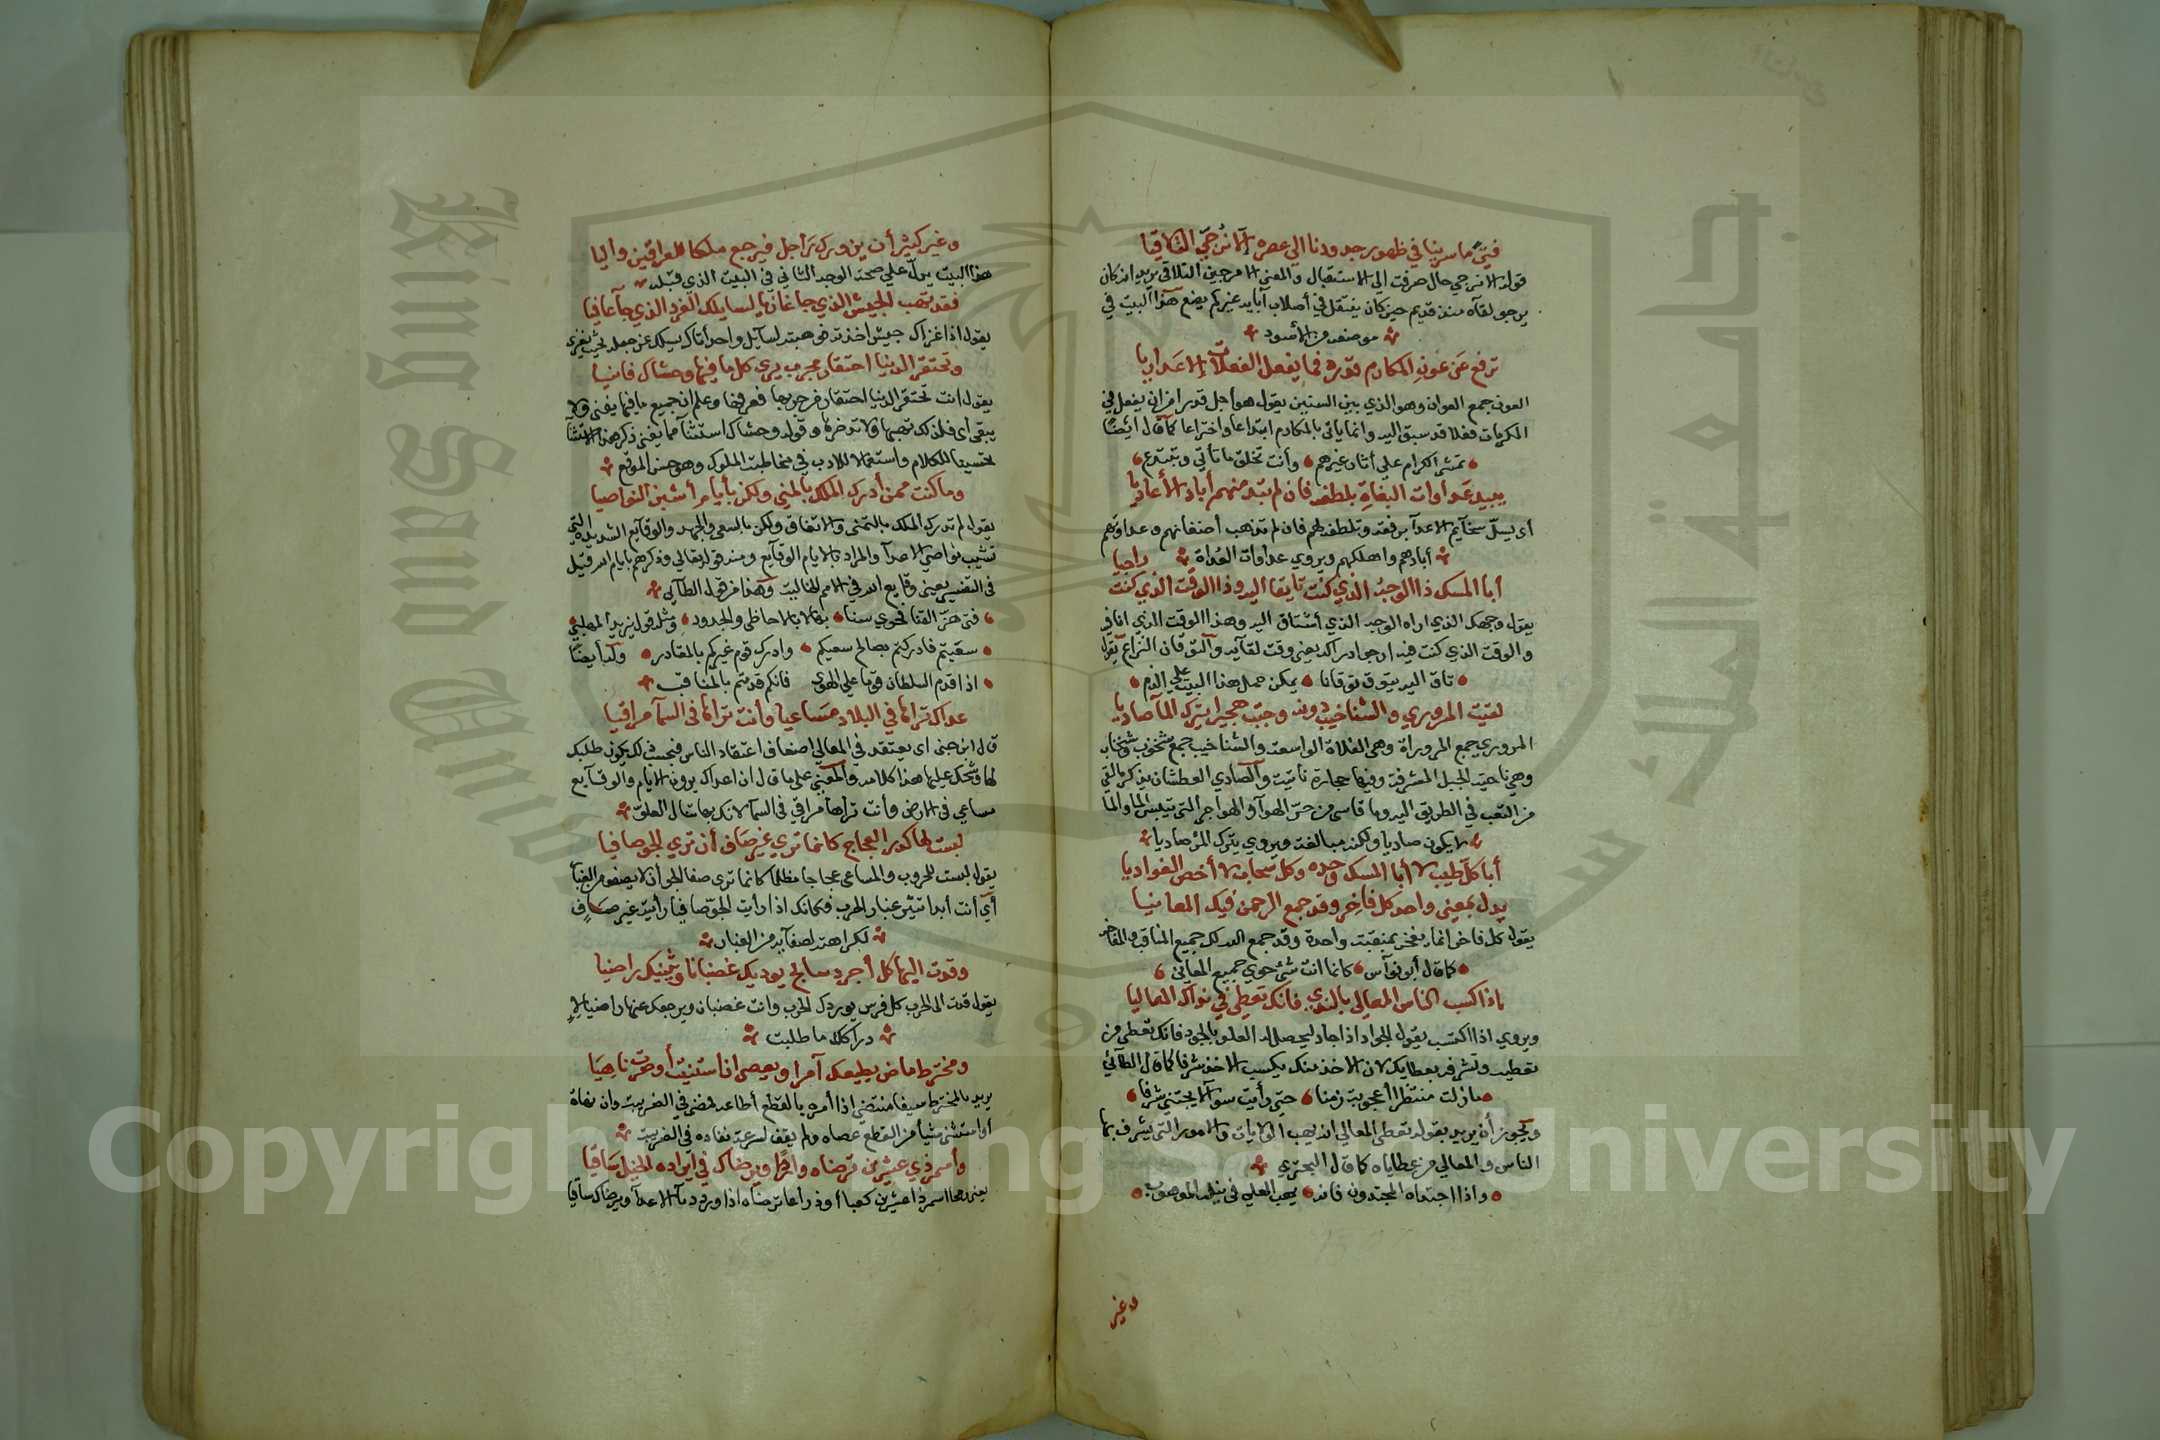 فتى ما سرينا في ظهور جدودنا الى عصره الا نرجي التلاقيا
قوله الا نرجي حال صرفت الى الاستقبال والمعنى الا مرجين التلاقي يريد انه كان
يرجو لقآه منذ قديم حين كان ينتقل في أصلاب آبايه غيركم يضع هذا البيت في
موضعه من الأسود
ترفع عن عون المكارم قدره فما يفعل الفعلات الا عذاريا
العون جمع العوان وهو الذي بين السنين يقول هو أجل قدرا من ان يفعل في
المكرمات فعلا قد سبق اليه وانما ياتي بالمكارم ابتداعا واختراعا كما قال ايضا
تمشي الكرام على أثار غيرهم وأنت تخلق ما تأتي وتبتدع
يبيد عداوات البغاة بلطفه فان لم تبد منهم أباد الأعاديا
أي يسل سخآيم الاعدآ برفقه وتلطفه لهم فان لم تذهب أضغانهم وعداوتهم
أبادهم واهلكهم ويروي عداوات العداة
راجيا
أبا المسك ذا الوجه الذي كنت تايقا اليه وذا الوقت الذي كنت
يقول وجهك الذي اراه الوجه الذي أشتاق اليه وهذا الوقت الذي انا فيه
والوقت الذي كنت فيه ارجو ادراكه يعني وقت لقآيه والتوقان النزاع يقال
تاق اليه يتوق توقانا يمكن حمل هذا البيت على الذم
لقيت المروري والشناخيب دونه وجبت هجيرا يترك المآ صاديا
المروري جمع المروراة وهي الفلاة الواسعة والشناخيب جمع شنخوب وشنخاب
وهي ناحية الجبل المشرفة وفيها حجارة ناتية والصادي العطشان يذكر ما لقي
من التعب في الطريق اليه وما قاسي من حر الهوآ والهواجر التي تيبس المآ والمآ
لا يكون صاديا ولكنه مبالغة ويروي يترك المرء صاديا
أبا كل طيب لا أبا المسك وحده وكل سحاب لا أخص الغواديا
يدل بمعنى واحد كل فاخر وقد جمع الرحمن فيك المعانيا
يقول كل فاخر انما يفخر بمنقبة واحدة وقد جمع الله لك جميع المناقب والمفاخر
كما قال أبو نوآس كانما انت شئ حوي جميع المعاني
اذا كسب الناس المعالي بالندي فانك تعطي في نداك المعاليا
ويروي اذا اكتسب يقول الجواد اذا جاد ليحصل له العلو بالجود فانك تعطي من
تعطيه وتشرفه بعطايك لان الاخذ منك يكسب الاخذ شرفا كما قال الطآئي
ما زلت منتظرا أعجوبة زمنا حتى رأيت سوآلا يجتني شرفا
ويجوز أن يريد بقوله تعطي المعالي انه يهب الولايات والامور التي يشرف بها
الناس والمعالي من عطاياه كما قال البحتري
واذا اجتداه المجتدون فانه يهب العلي في نيله الموهوب
وغير
وغير كثير أن يزورك راجل فيرجع ملكا للعراقين واليا
هذا البيت يدل على صحة الوجه الثاني في البيت الذي قبله
فقد تهب الجيش الذي جآ غازيا لسايلك الفرد الذي جآ عافيا
يقول اذا غزاك جيش اخذته فوهبته لسآيل واحد أتاك يسلك عن
وتحتقر الدنيا احتقار مجرب يري كل ما فيها وحشاك فانيا
يقول انت تحتقر الدنيا احتقار من جربها فعرفها وعلم ان جميع ما فيها يفنى ولا
يبقى أي فلذلك تهبها ولا تدخرها وقوله وحشاك استثنآ مما يفنى ذكر هذا الاستثنآ
تحسينا للكلام واستعمالا للادب في مخاطبة الملوك وهو حسن الموقع
وما كنت ممن أدرك الملك بالمني ولكن بأيام أشبن النواصيا
يقول لم تدرك الملك بالتمني والاتفاق ولكن بالسعي والجهد والوقآيع الشديدة التي
تشيب نواصي الاعدآ والمراد بالايام الوقآيع ومنه قوله تعالي وذكرهم بايام الله قيل
في التفسير يعني وقايع الله في الامم الخالية وهذا من قول الطآئي
فتى هز القنا فحوي سنآ بها لا بالاحاظي والجدود ومثله قول يزيد المهلبي
سعيتم فادركتم بصالح سعيكم وادرك قوم غيركم بالمقادر وله أيضا
اذا قدم السلطان قوما على الهوي فانكم قدمتم بالمناقب
عداك تراها في البلاد مساعيا وأنت تراها في السمآ مراقيا
قال ابن جني اي يعتقد في المعالي اضعاف اعتقاد الناس فبحسب ذلك يكون طلبك
لها وشحك عليها هذا كلامه والمعنى على ما قال ان اعداك يرون الايام والوقآيع
مساعي في الارض وأنت تراها مراقي في السمآ لانك بها تنال العلو
لبست لها كدر العجاج كانما تري غير صاف أن تري الجو صافيا
يقول لبست للحروب والمساعي عجاجا مظلما كانما تري صفا الجو أن لا يصفو من الغبار
أي أنت أبدا تثير غبار الحرب فكانك اذا رأيت الجو صافيا رأيته غير صاف
لكراهته لصفآيه من الغبار
وقدت اليها كل أجرد سابح يوديك غضبانا ويثنيك راضيا
يقول قدت الى الحرب كل فرس يوردك الحرب وانت غضبان ويرجعك عنها راضيا لا
دراكك ما طلبت
ومخترط ماض يطيعك آمرا ويعصي اذا استثنيت أو صرت ناهيا
يريد بالمخترط سيفا منتضى اذا أمره بالقطع أطاعه فمضى في الضريبة وان نهاه
أو استثنى شيأ من القطع عصاه ولم يقف لسرعة نفاده في الضريبة
وأسمر ذي عشرين ترضاه واردا ويرضاك في ايراده الخيل ساقيا
يعني رمحا اسمر ذا عشرين كعبا أو ذراعا ترضاه اذا ورد دمآ الاعدآ ويرضاك ساقيا
Copyright © King Saud University
King Saud University
جامعة الملك سعود